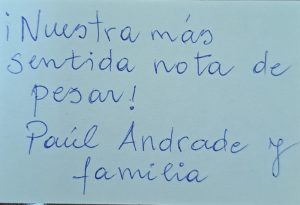 ¡Nuestra más
sentida nota de
pesar!
Paúl Andrade y
familia